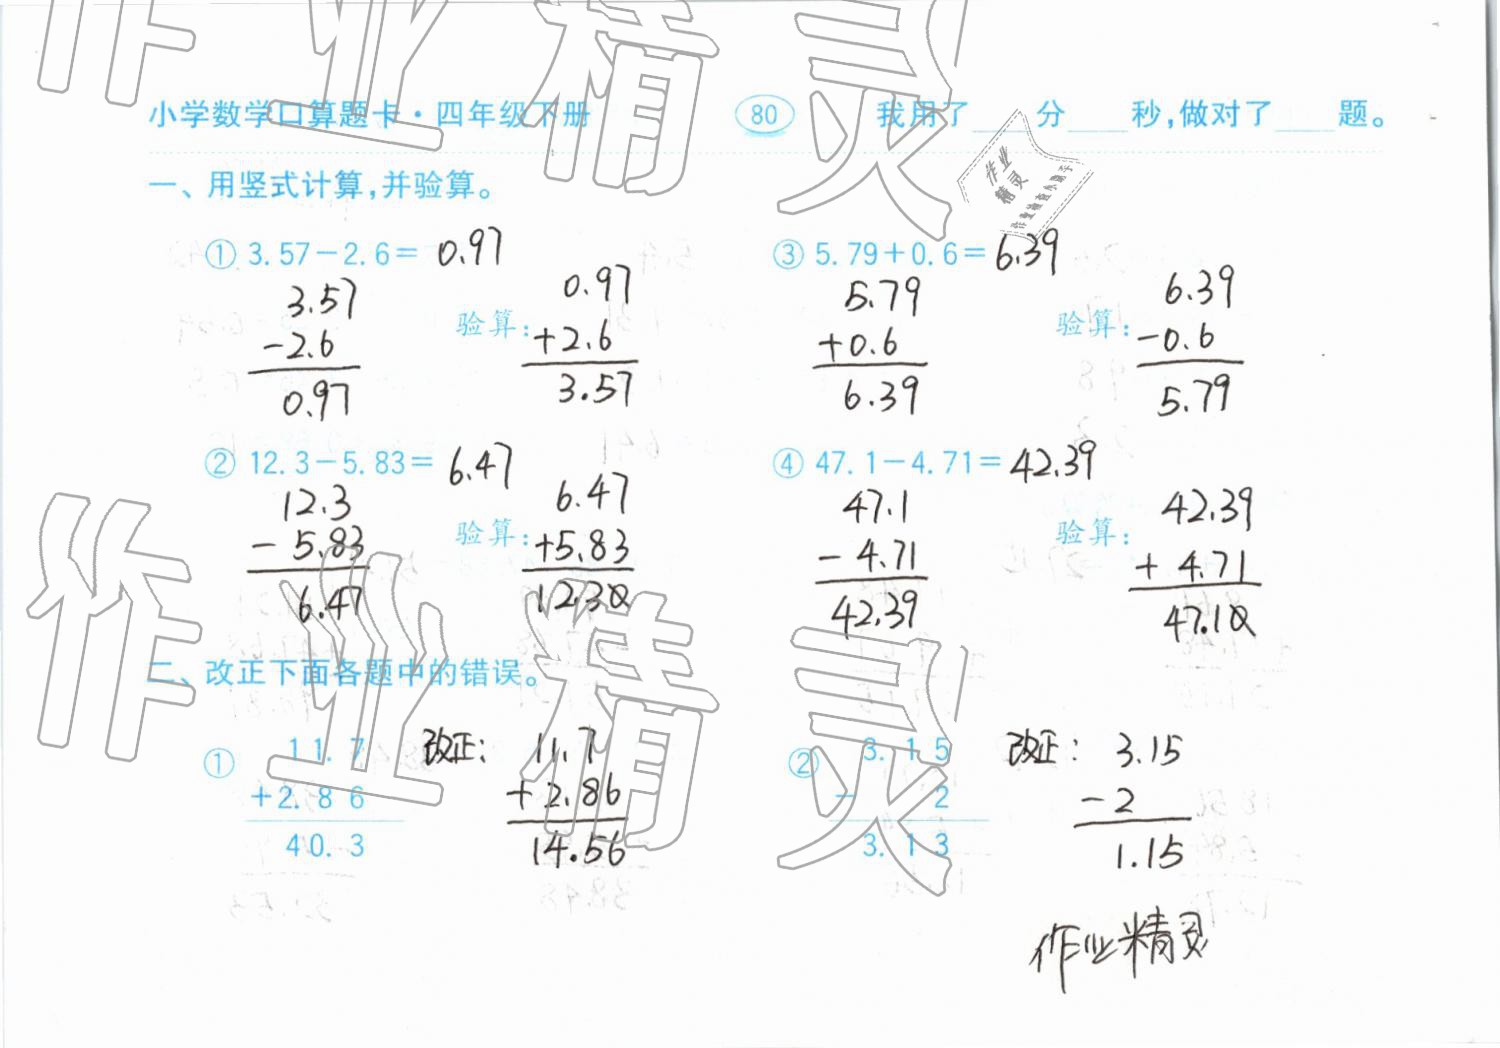 小学数学口算题卡·四年级下册 80 我用了___分___秒,做对了___题。
一、用竖式计算,并验算。
① 3.57-2.6= 0.97
3.57
-2.6
0.97
验算:
0.97
+2.6
3.57
③ 5.79+0.6= 6.39
5.79
+0.6
6.39
验算:
6.39
-0.6
5.79
② 12.3-5.83= 6.47
12.3
- 5.83
6.47
验算:
6.47
+5.83
12.30
④ 47.1-4.71= 42.39
47.1
- 4.71
42.39
验算:
42.39
+ 4.71
47.10
二、改正下面各题中的错误。
①
11.7
+2.86
40.3
改正:
11.7
+2.86
14.56
②
3.15
- 2
3.13
改正:
3.15
-2
1.15
作业精灵
作业精灵
作业精灵
作业
精灵